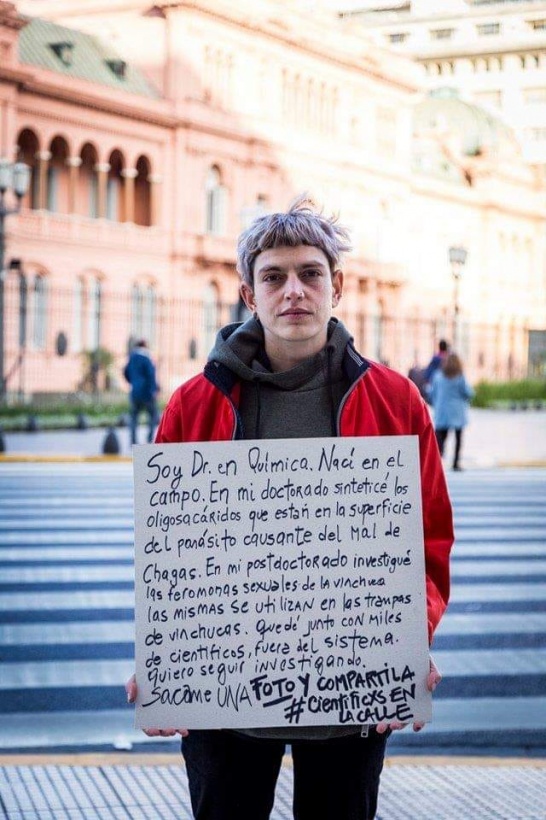 Soy Dr. en Química. Nací en el
campo. En mi doctorado sinteticé los
oligosacáridos que están en la superficie
del parásito causante del Mal de
Chagas. En mi postdoctorado investigué
las feromonas sexuales de la vinchuca
las mismas se utilizan en las trampas
de vinchucas. Quedé junto con miles
de científicos, fuera del sistema.
Quiero seguir investigando.
Sacame UNA FOTO Y COMPARTILA
#CientíficXs EN
LA CALLE